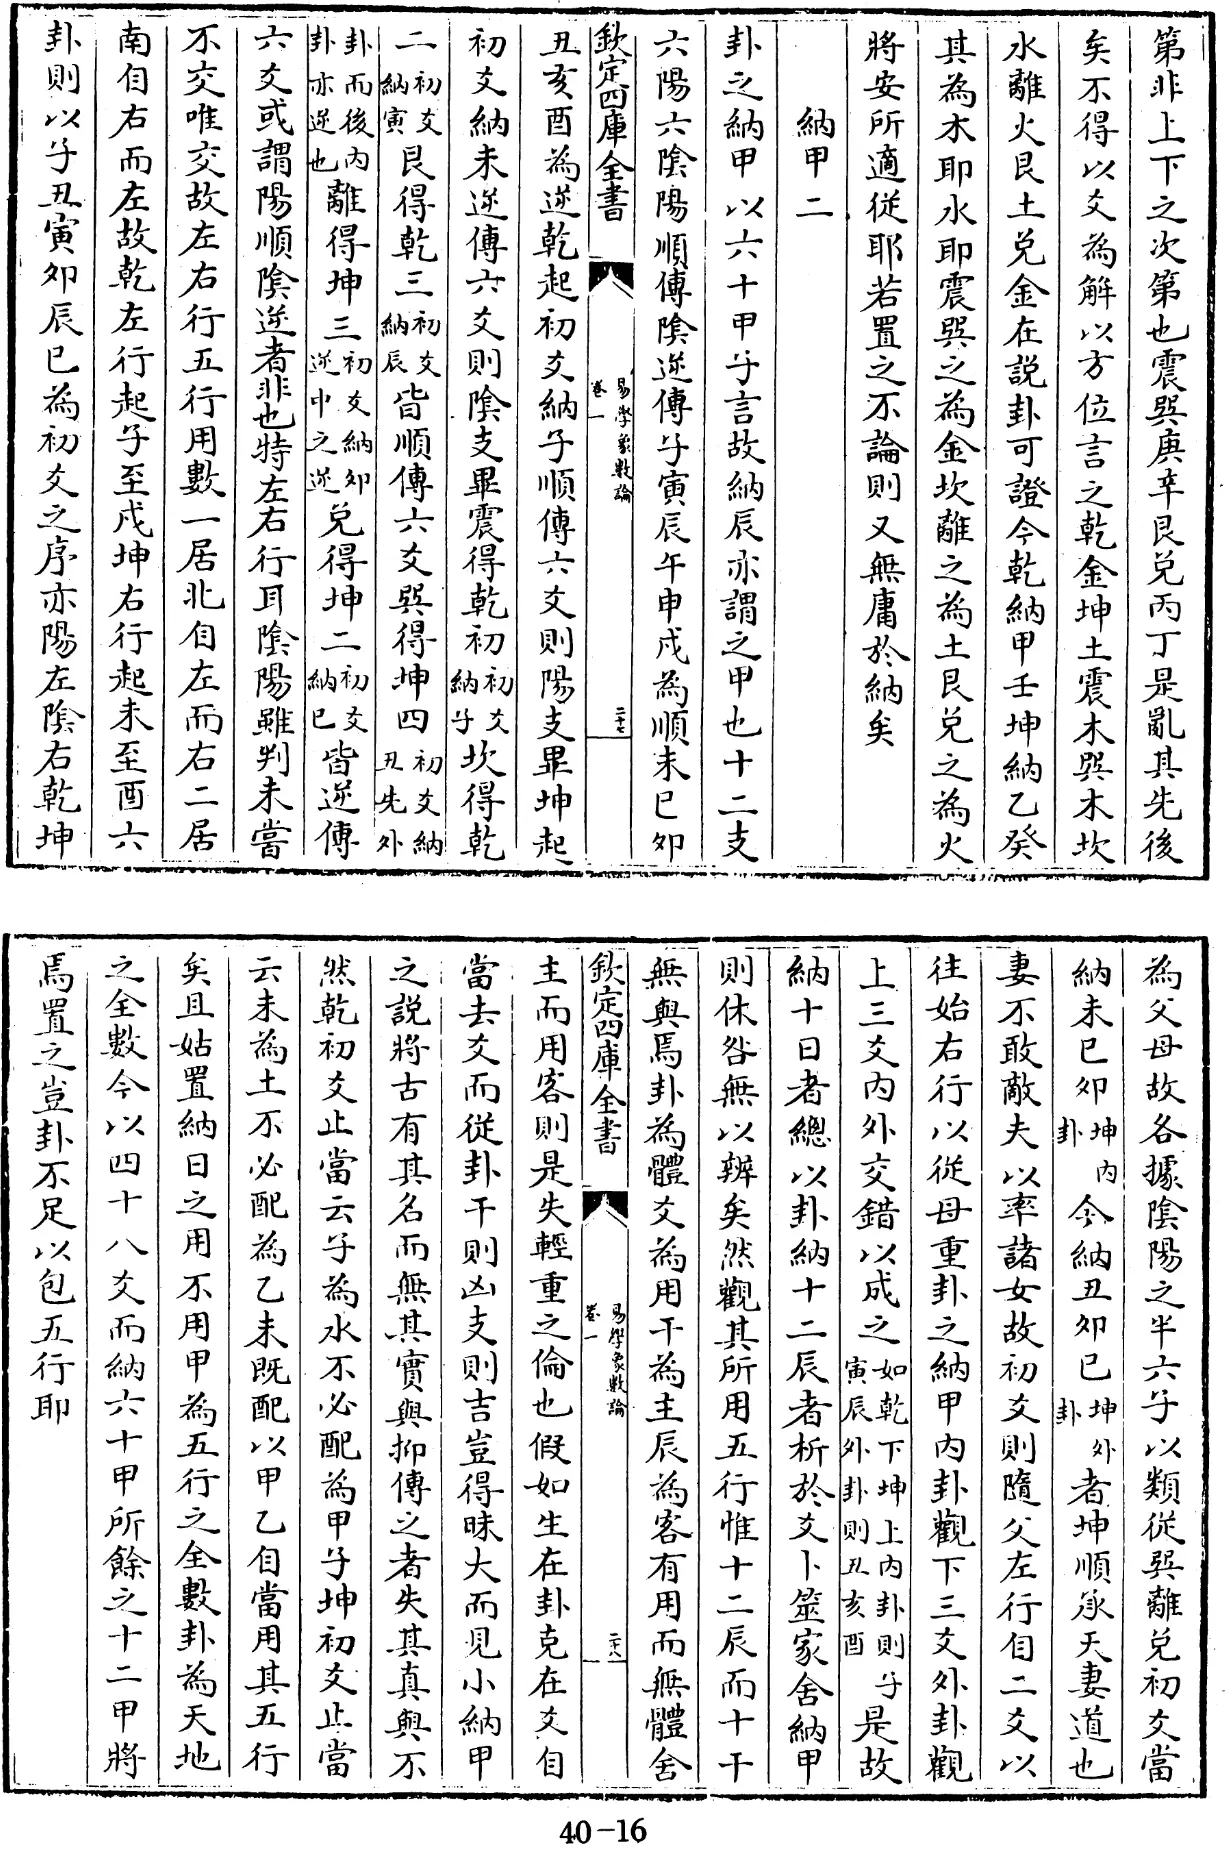 第非上下之次第也震巽庚辛艮兌丙丁是亂其先後
矣不得以爻為解以方位言之乾金坤土震木巽木坎
水離火艮土兌金在說卦可證今乾納甲壬坤納乙癸
其為木耶水耶震巽之為金坎離之為土艮兌之為火
將安所適從耶若置之不論則又無庸於納矣
納甲二
卦之納甲以六十甲子言故納辰亦謂之甲也十二支
六陽六陰陽順傳陰逆傳子寅辰午申戌為順未巳卯
欽定四庫全書
易學象數論
卷一
二十七
丑亥酉為逆乾起初爻納子順傳六爻則陽支畢坤起
初爻納未逆傳六爻則陰支畢震得乾初初爻納子坎得乾
二初爻納寅艮得乾三初爻納辰皆順傳六爻巽得坤四初爻納丑先外
卦而後內卦亦逆也離得坤三初爻納卯逆中之逆兌得坤二初爻納巳皆逆傳
六爻或謂陽順陰逆者非也特左右行耳陰陽雖判未當
不交唯交故左右行五行用數一居北自左而右二居
南自右而左故乾左行起子至戌坤右行起未至酉六
卦則以子丑寅卯辰巳為初爻之序亦陽左陰右乾坤
為父母故各據陰陽之半六子以類從巽離兌初爻當
納未巳卯坤內卦今納丑卯巳坤外卦者坤順承天妻道也
妻不敢敵夫以率諸女故初爻則隨父左行自二爻以
往始右行以從母重卦之納甲內卦觀下三爻外卦觀
上三爻內外交錯以成之如乾下坤上內卦則子寅辰外卦則丑亥酉是故
納十日者總以卦納十二辰者析於爻卜筮家舍納甲
則休咎無以辨矣然觀其所用五行惟十二辰而十干
無與焉卦為體爻為用干為主辰為客有用而無體舍
欽定四庫全書
易學象數論
卷一
二十八
主而用客則是失輕重之倫也假如生在卦克在爻自
當去爻而從卦干則凶支則吉豈得昧大而見小納甲
之說將古有其名而無其實與抑傳之者失其真與不
然乾初爻止當云子為水不必配為甲子坤初爻止當
云未為土不必配為乙未既配以甲乙自當用其五行
矣且姑置納日之用不用甲為五行之全數卦為天地
之全數今以四十八爻而納六十甲所餘之十二甲將
焉置之豈卦不足以包五行耶
40-16